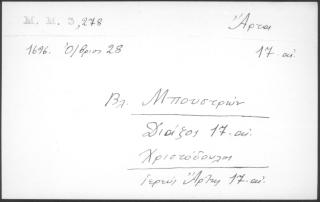 Μ. Μ. 3, 278 Ἄρτα
1696. Ὀ/βριος 28 17 αἰ.
Βλ. Μπουστρών
Διάξος 17 αἰ.
Χριστόδουλος
ἱερεύς Ἄρτης 17 αἰ.